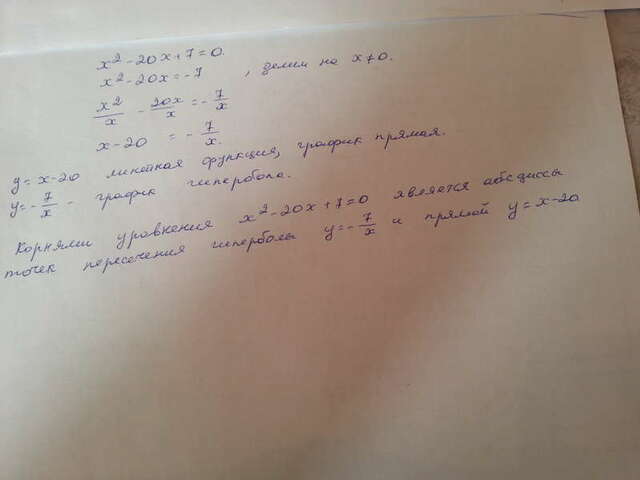 x² - 20x + 7 = 0.
x² - 20x = -7 , делим на x ≠ 0.
x²/x - 20x/x = - 7/x
x - 20 = - 7/x.
y = x - 20 линейная функция, график прямая.
y = - 7/x - график гипербола.
Корнями уравнения x² - 20x + 7 = 0 является абсциссы
точек пересечения гиперболы y = - 7/x и прямой y = x - 20